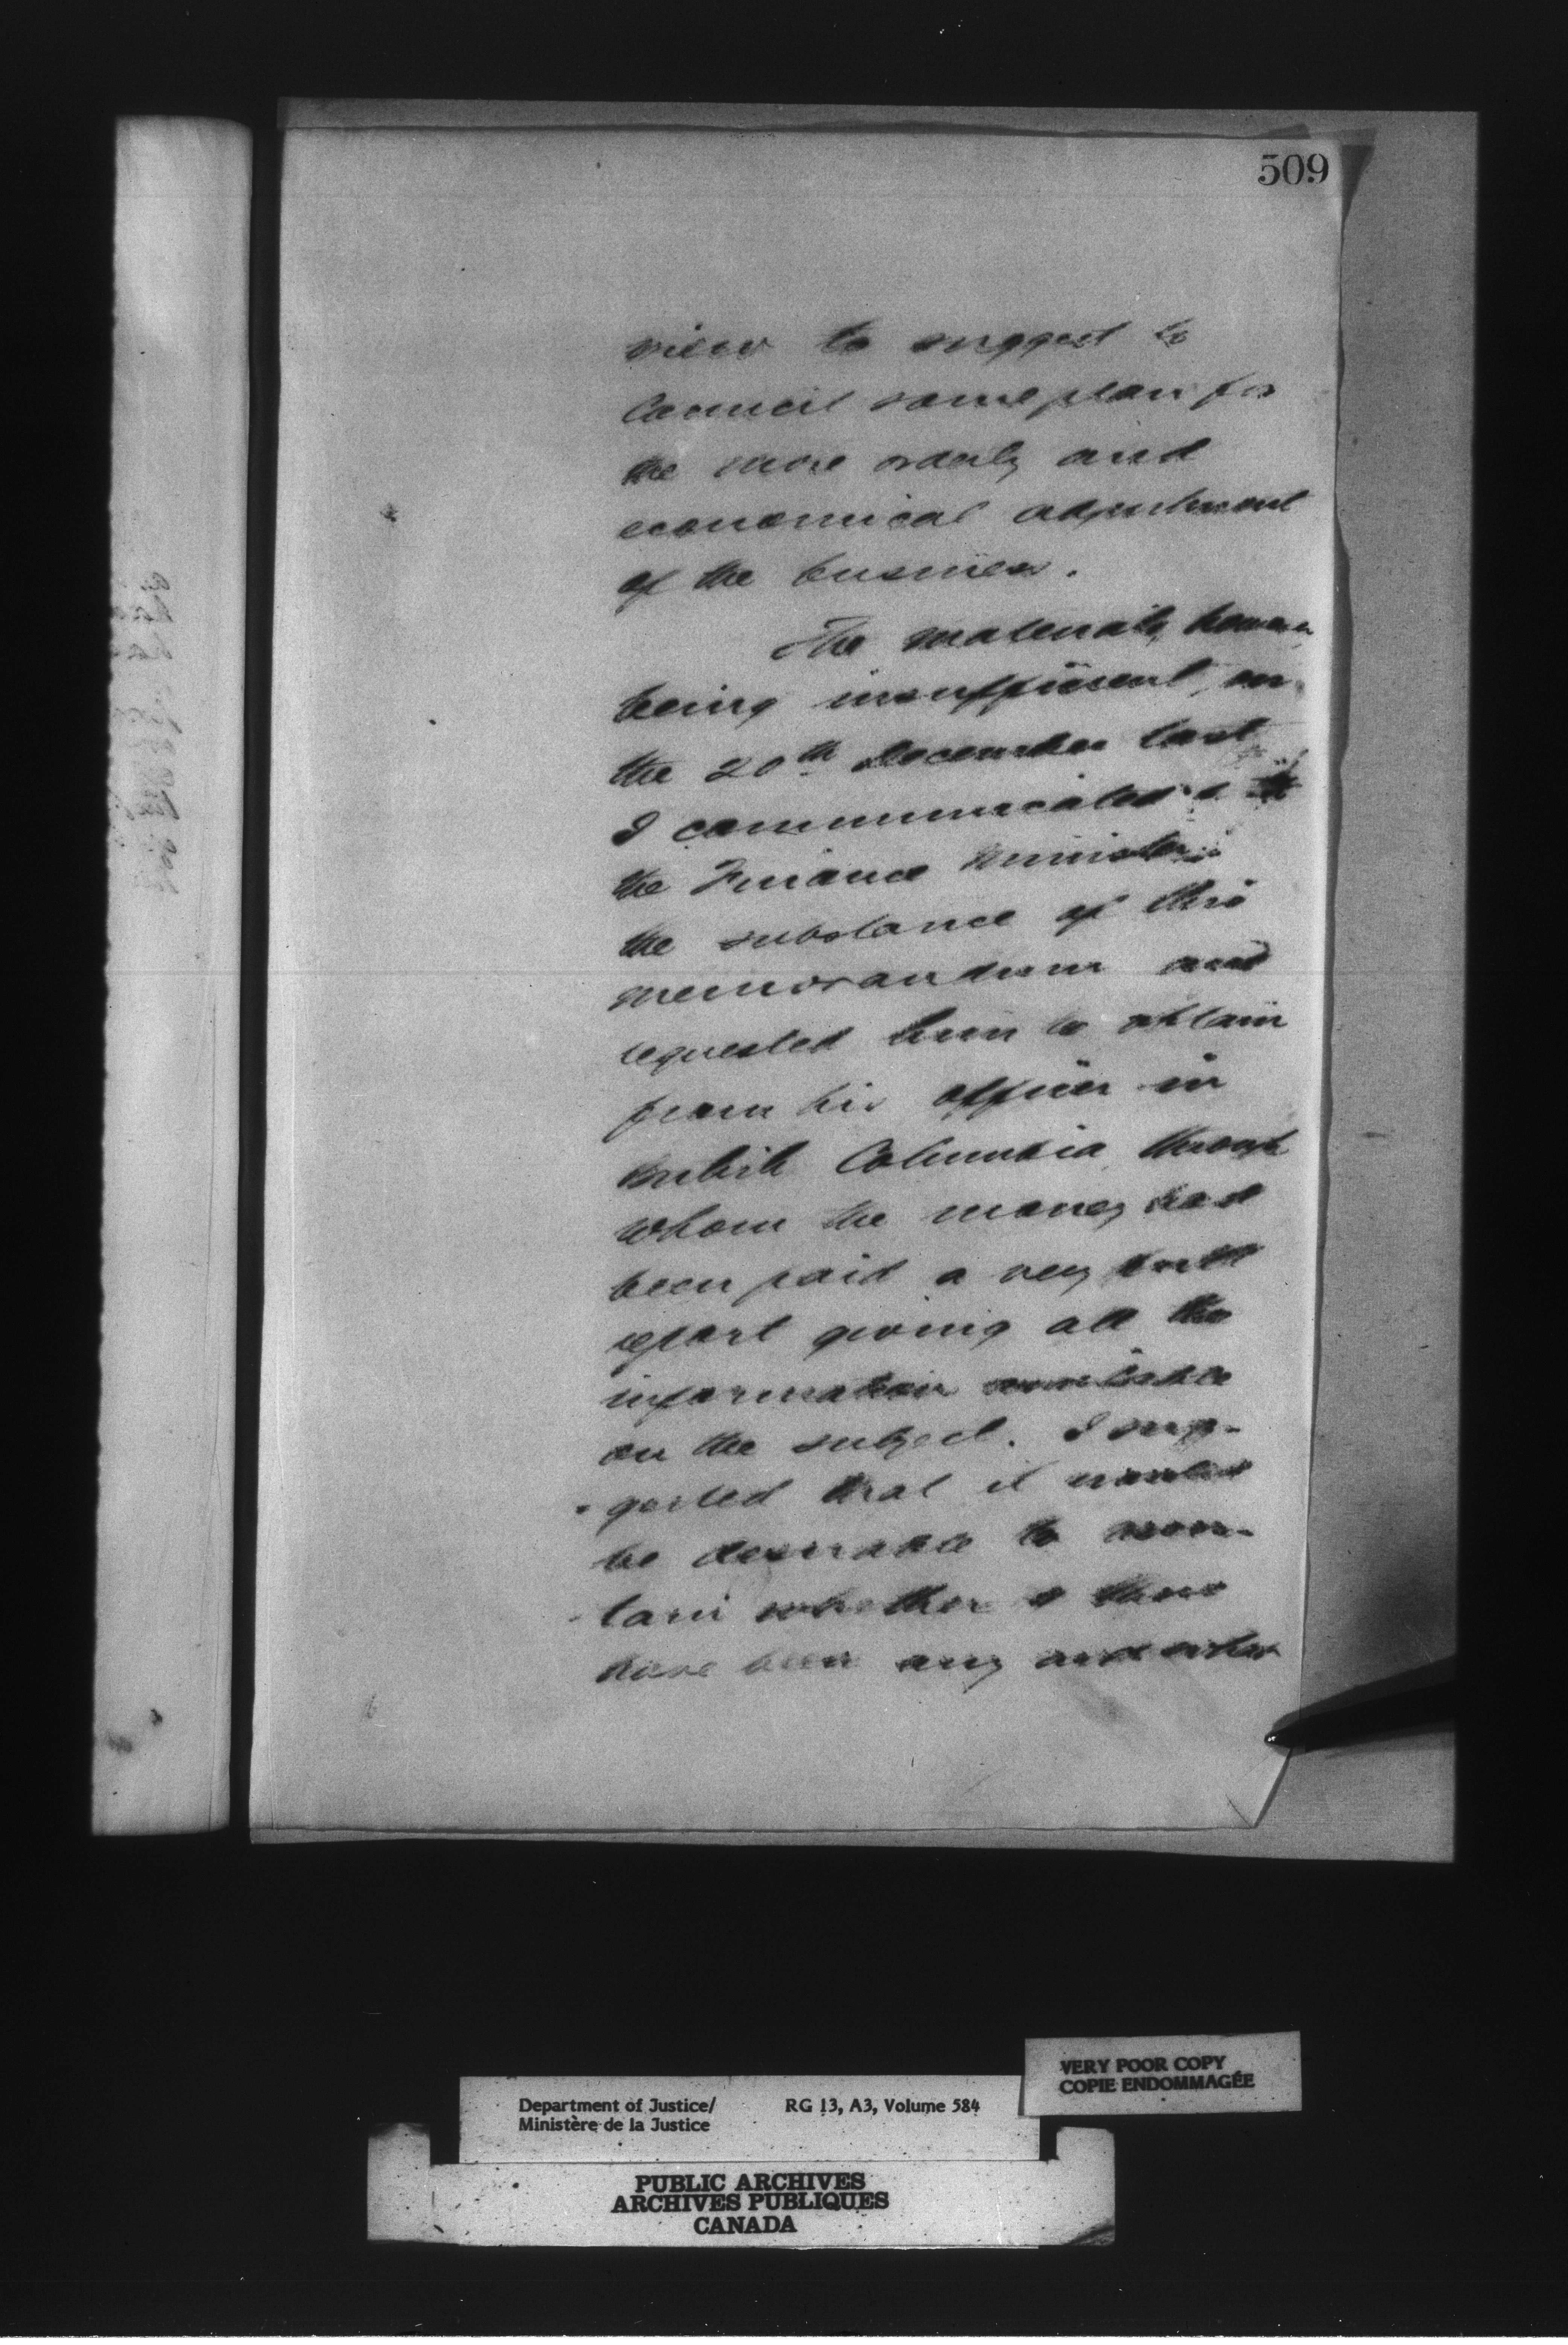 509
view to suggest to
Council some plan for
the more orderly and
economical adjustment
of the business.
The materials, however
being insufficient, on
the 20th December last
I communicated to
the Finance Minister
the substance of this
memorandum and
requested him to obtain
from his officer in
British Columbia through
whom the money had
been paid a very full
report giving all the
information available
on the subject. I sug-
gested that it would
be desirable to ascer-
tain whether there
have been any and what
Department of Justice/
Ministère de la Justice
RG 13, A3, Volume 584
VERY POOR COPY
COPIE ENDOMMAGÉE
PUBLIC ARCHIVES
ARCHIVES PUBLIQUES
CANADA